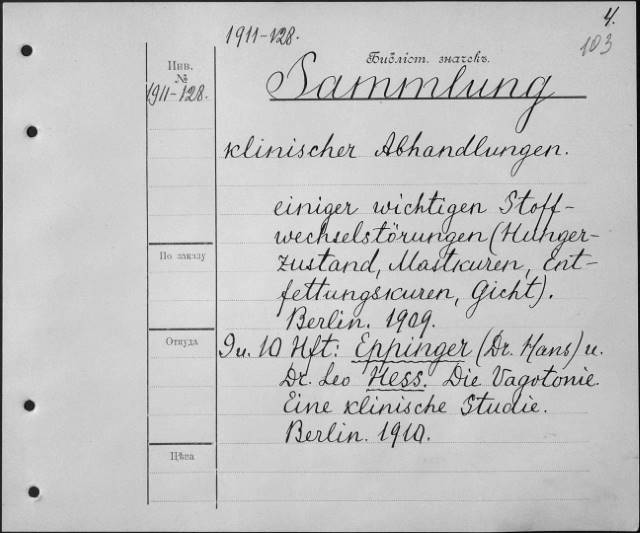 4.
1911-128.
103
Библіот. значекъ.
Инв.
№
1911-128.
Sammlung
klinischer Abhandlungen.
einiger wichtigen Stoff-
wechselstörungen (Hunger-
По заказу
zustand, Mastkuren, Ent-
fettungskuren, Gicht).
Berlin. 1909.
Откуда
9 u. 10 Hft: Eppinger (Dr. Hans) u.
Dr. Leo Hess. Die Vagotonie.
Eine klinische Studie.
Berlin. 1910.
Цѣна